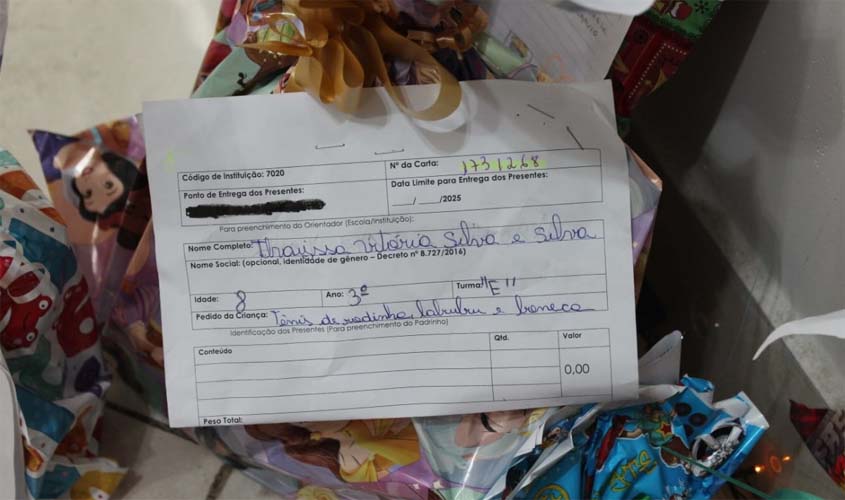 Código de Instituição: 7020
Nº da Carta: 1731268
Ponto de Entrega dos Presentes:
Data Limite para Entrega dos Presentes:
___/ ___/2025
Para preenchimento do Orientador (Escola/Instituição):
Nome Completo: Thayissa Vitória Silva e Silva
Nome Social: (opcional, identidade de gênero – Decreto nº 8.727/2016)
Idade: 8 Ano: 3º Turma: "E"
Pedido da Criança: Tênis de rodinha, labubu e boneca
Identificação dos Presentes (Para preenchimento do Padrinho)
Conteúdo Qtd. Valor
0,00
Peso Total: